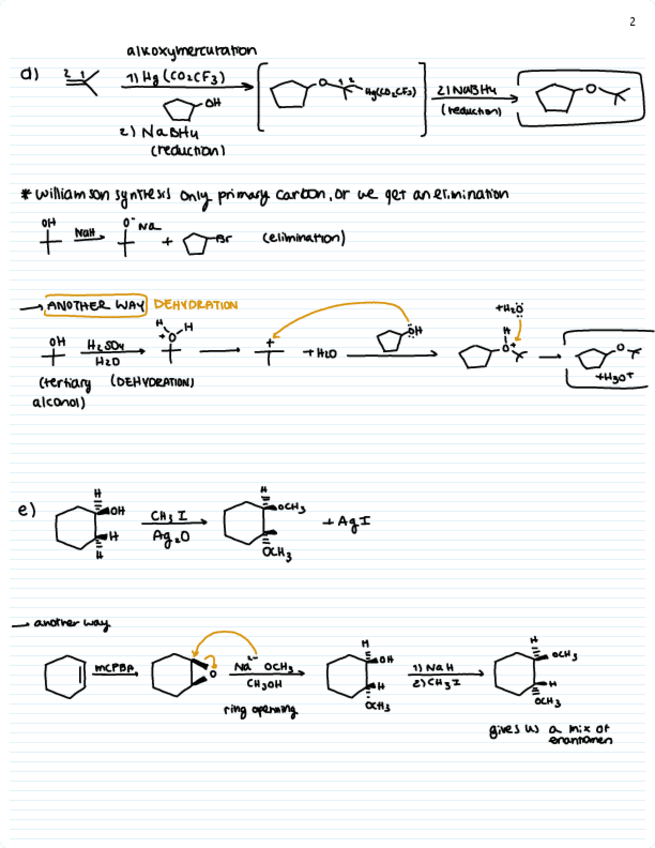 2
alkoxymercuration
d) 2 1 1) Hg(CO2CF3) OH 2) NaBH4 (reduction) O 1 2 Hg(CO2CF3) 2) NaBH4 (reduction) O
* Williamson synthesis only primary carbon, or we get an elimination
OH NaH O⁻ Na + Br (elimination)
→ ANOTHER WAY DEHYDRATION
OH H2SO4 H2O H +O H + + H2O OH H O+ +H2O O +H3O+
(tertiary alcohol) (DEHYDRATION)
e) H OH H H CH3I Ag2O H OCH3 OCH3 + AgI
→ another way
mCPBA O Na⁻ OCH3 CH3OH H OH H OCH3 1) NaH 2) CH3I H OCH3 H OCH3
ring opening
gives us a mix of